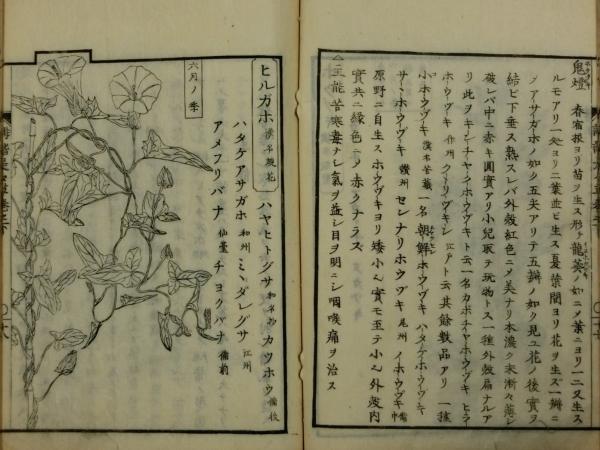 鬼燈 春宿根ヨリ苗ヲ生ス形チ龍葵ノ如ニメ葉ニヨリ一二又生ス
ルモアリ一処ヨリ二葉並ビ生ス夏葉間ヨリ花ヲ生ズ一瓣ニ
〆アサガホノ如ク五尖アリテ五瓣ノ如ク見ユ花ノ後實ヲ
結ビ下垂ス熟スレバ外殻紅色ニメ美ナリ本濃ク末漸々薄シ
破レバ中ニ赤キ圓實アリ小児取テ玩物トス一種外殻扁ナルア
リ此ヲキンチャクホウヅキト云一名カボチャホウヅキ ヒラ
ホウヅキ 作州 クリヅキシ 江戸ト云其餘数品アリ 一種
小ホウヅキ 漢名苦蘵 一名朝鮮ホウヅキ ハタケホウヅキ
サミホウヅキ 讃州 セレナリホウヅキ 尾州 イホウヅキ 備中
原野ニ自生スホウヅキヨリ矮小ク實モ至テ小ク外殻内
實共ニ緑色ニメ赤クナラズ
△主能苦寒毒ナシ氣ヲ益シ目ヲ明ニシ咽喉痛ヲ治ス
ヒルガホ 漢名旋花 ハヤヒトグサ 和名鈔 カツホウ 備後
ハタケアサガホ 和州 ミヽダレグサ 江州
アメフリバナ 仙臺 チヨクバナ 備前
六月ノ季